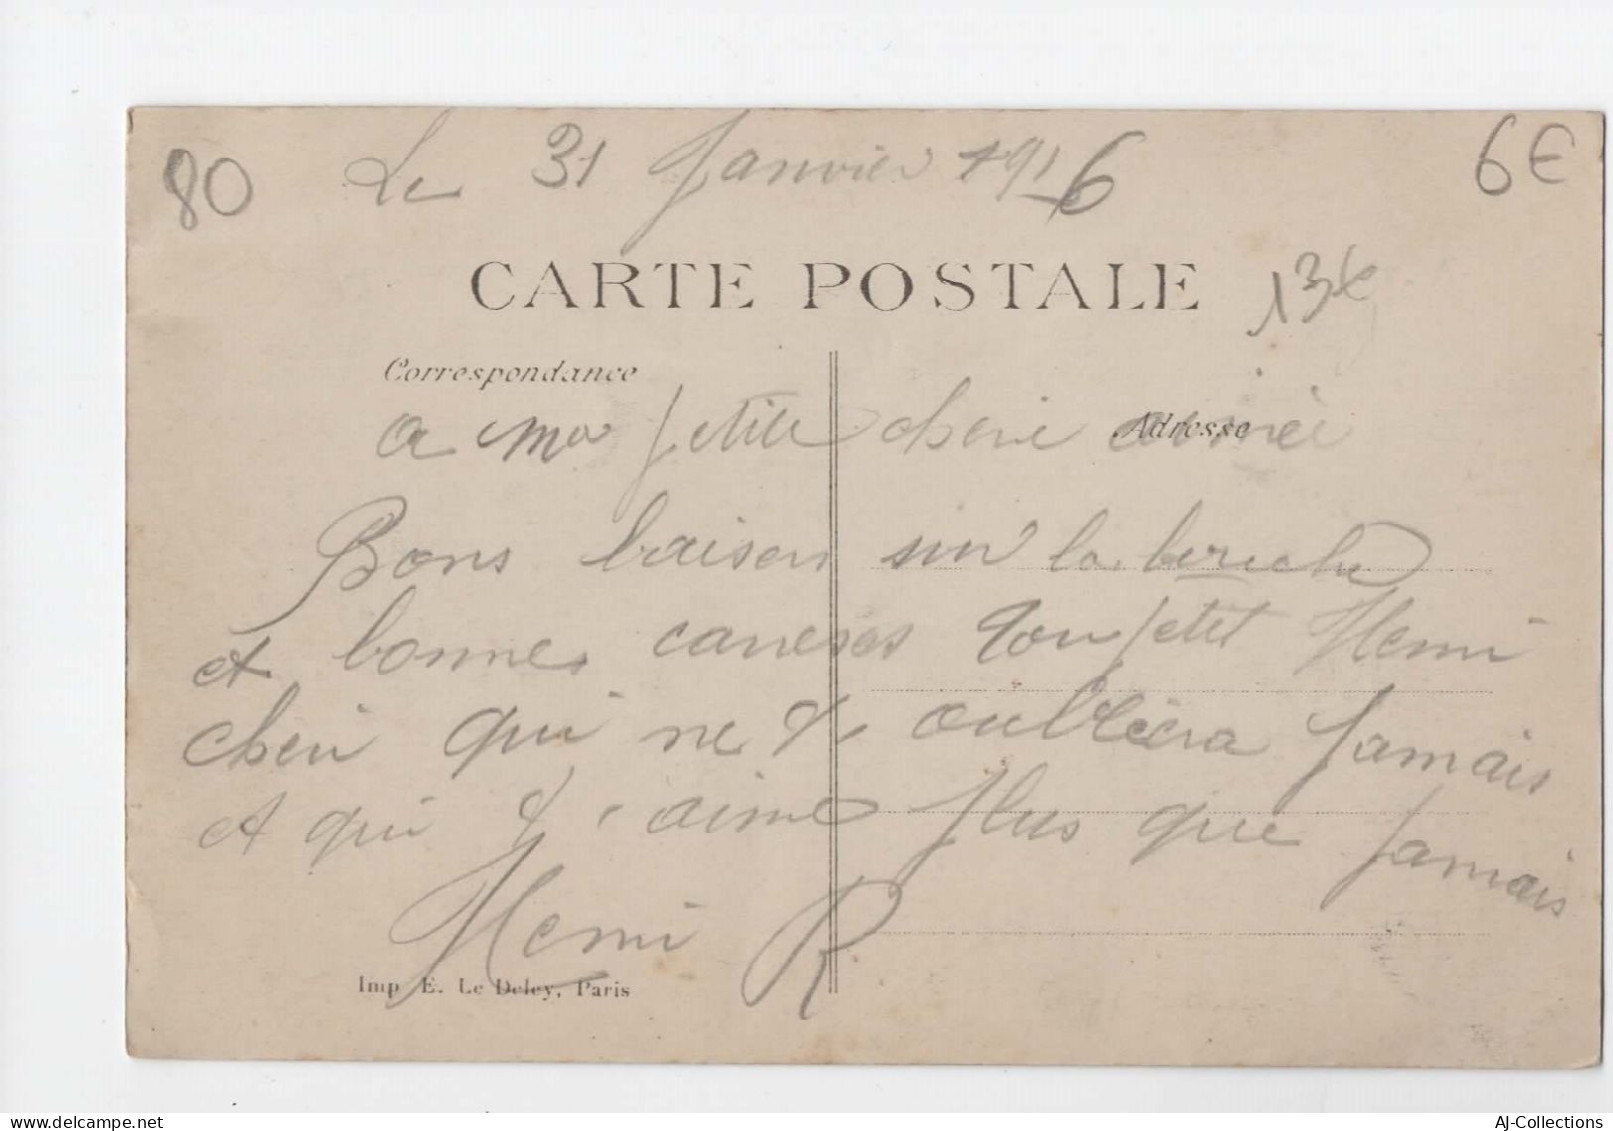 80
Le 31 Janvier 1916
6€
CARTE POSTALE
13€
Correspondance
Adresse
a ma petite cherie aimée
Bons baisers sur la bouche
et bonnes caresses ton petit Henri
cheri qui ne t oubliera Jamais
et qui t'aime plus que Jamais
Henri R
Imp. E. Le Deley, Paris
AJ-Collections